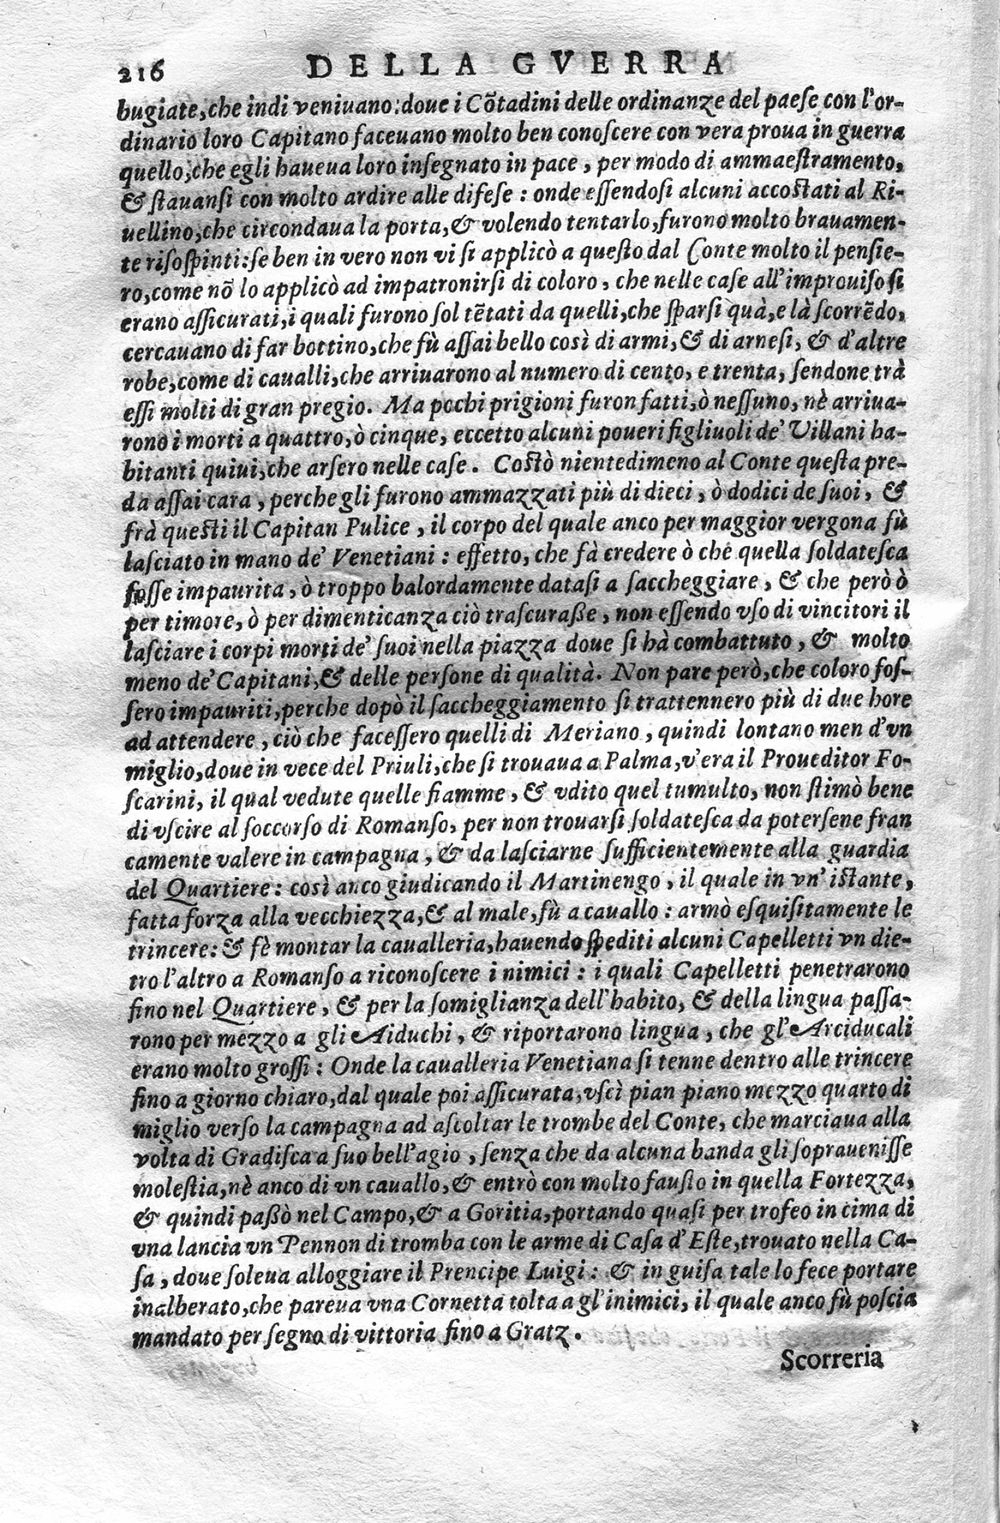 216 DELLA GVERRA
bugiate, che indi veniuano: doue i Cõtadini delle ordinanze del paese con l'or-
dinario loro Capitano faceuano molto ben conoscere con vera proua in guerra
quello, che egli haueua loro insegnato in pace, per modo di ammaestramento,
& stauansi con molto ardire alle difese: onde essendosi alcuni accostati al Ri-
uellino, che circondaua la porta, & volendo tentarlo, furono molto brauamen-
te risospinti: se ben in vero non vi si applicò a questo dal Conte molto il pensie-
ro, come nõ lo applicò ad impatronirsi di coloro, che nelle case all'improuiso si
erano assicurati, i quali furono sol tẽtati da quelli, che sparsi quà, e là scorrẽdo,
cercauano di far bottino, che fù assai bello così di armi, & di arnesi, & d'altre
robe, come di caualli, che arriuarono al numero di cento, e trenta, sendone trà
essi molti di gran pregio. Ma pochi prigioni furon fatti, ò nessuno, nè arriua-
rono i morti a quattro, ò cinque, eccetto alcuni poueri figliuoli de' Villani ha-
bitanti quiui, che arsero nelle case. Costò nientedimeno al Conte questa pre-
da assai cara, perche gli furono ammazzati più di dieci, ò dodici de suoi, &
frà questi il Capitan Pulice, il corpo del quale anco per maggior vergona fù
lasciato in mano de' Venetiani: effetto, che fà credere ò che quella soldatesca
fosse impaurita, ò troppo balordamente datasi a saccheggiare, & che però ò
per timore, ò per dimenticanza ciò trascuraße, non essendo vso di vincitori il
lasciare i corpi morti de' suoi nella piazza doue si hà combattuto, & molto
meno de' Capitani, & delle persone di qualità. Non pare però, che coloro fos-
sero impauriti, perche dopò il saccheggiamento si trattennero più di due hore
ad attendere, ciò che facessero quelli di Meriano, quindi lontano men d'vn
miglio, doue in vece del Priuli, che si trouaua a Palma, v'era il Proueditor Fo-
scarini, il qual vedute quelle fiamme, & vdito quel tumulto, non stimò bene
di vscire al soccorso di Romanso, per non trouarsi soldatesca da potersene fran
camente valere in campagna, & da lasciarne sufficientemente alla guardia
del Quartiere: così anco giudicando il Martinengo, il quale in vn' istante,
fatta forza alla vecchiezza, & al male, fù a cauallo: armò esquisitamente le
trincere: & fè montar la caualleria, hauendo spediti alcuni Capelletti vn die-
tro l'altro a Romanso a riconoscere i nimici: i quali Capelletti penetrarono
fino nel Quartiere, & per la somiglianza dell'habito, & della lingua passa-
rono per mezzo a gli Aiduchi, & riportarono lingua, che gl'Arciducali
erano molto grossi: Onde la caualleria Venetiana si tenne dentro alle trincere
fino a giorno chiaro, dal quale poi assicurata, vscì pian piano mezzo quarto di
miglio verso la campagna ad ascoltar le trombe del Conte, che marciaua alla
volta di Gradisca a suo bell'agio, senza che da alcuna banda gli soprauenisse
molestia, nè anco di vn cauallo, & entrò con molto fausto in quella Fortezza,
& quindi paßò nel Campo, & a Goritia, portando quasi per trofeo in cima di
vna lancia vn Pennon di tromba con le arme di Casa d'Este, trouato nella Ca-
sa, doue soleua alloggiare il Prencipe Luigi: & in guisa tale lo fece portare
inalberato, che pareua vna Cornetta tolta a gl'inimici, il quale anco fù poscia
mandato per segno di vittoria fino a Gratz.
Scorreria